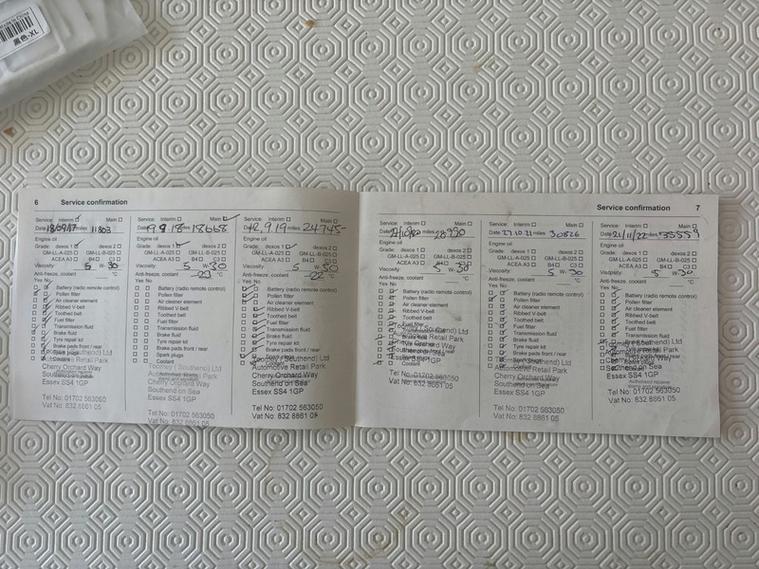 黑色-XL
6 Service confirmation
Service: Interim Main
Date 18/09/17 miles 11803
Engine oil
Grade: dexos 1 dexos 2
GM-LL-A-025 GM-LL-B-025
ACEA A3 B4 C3
Viscosity 5 W- 30
Anti-freeze, coolant °C
Yes No
Battery (radio remote control)
Pollen filter
Air cleaner element
Ribbed V-belt
Toothed belt
Fuel filter
Transmission fluid
Brake fluid
Tyre repair kit
Brake pads front / rear
Cherry Orchard Way
Southend on Sea
Essex SS4 1GP
Tel No: 01702 563050
Vat No: 832 8861 05
Service: Interim Main
Date 9 9 18 18668
Engine oil
Grade: dexos 1 dexos 2
GM-LL-A-025 GM-LL-B-025
ACEA A3 B4 C3
Viscosity 5 W- 30
Anti-freeze, coolant °C
Yes No
Battery (radio remote control)
Pollen filter
Air cleaner element
Ribbed V-belt
Toothed belt
Fuel filter
Transmission fluid
Brake fluid
Tyre repair kit
Brake pads front / rear
Spark plugs
Coolant
Cherry Orchard Way
Southend on Sea
Essex SS4 1GP
Tel No: 01702 563050
Vat No: 832 8861 05
Service: Interim Main
miles 24745
Engine oil
Grade: dexos 1 dexos 2
GM-LL-A-025 GM-LL-B-025
ACEA A3 B4 C3
Viscosity 5 W- 30
Anti-freeze, coolant °C
Yes No
Battery (radio remote control)
Pollen filter
Air cleaner element
Ribbed V-belt
Toothed belt
Fuel filter
Transmission fluid
Brake fluid
Tyre repair kit
Brake pads front / rear
Automotive Retail Park
Cherry Orchard Way
Southend on Sea
Essex SS4 1GP
Tel No: 01702 563050
Vat No: 832 8861 05
Service confirmation 7
Service: Interim Main
miles 28990
Engine oil
Grade: dexos 1 dexos 2
GM-LL-A-025 GM-LL-B-025
ACEA A3 B4 C3
Viscosity 5 W- 30
Anti-freeze, coolant °C
Yes No
Battery (radio remote control)
Pollen filter
Air cleaner element
Ribbed V-belt
Toothed belt
Coolant
Tel No: 01702 563050
Vat No: 832 8861 05
Service: Interim Main
Date 27.10.21 miles 30826
Engine oil
Grade: dexos 1 dexos 2
GM-LL-A-025 GM-LL-B-025
ACEA A3 B4 C3
Viscosity 5 W- 30
Anti-freeze, coolant °C
Yes No
Battery (radio remote control)
Pollen filter
Air cleaner element
Ribbed V-belt
Toothed belt
Fuel filter
Transmission fluid
Brake fluid
Tyre repair kit
Brake pads front / rear
Cherry Orchard Way
Southend on Sea
Essex SS4 1GP
Tel No: 01702 563050
Vat No: 832 8861 05
Service: Interim Main
Date 21/11/22 miles
Engine oil
Grade: dexos 1 dexos 2
GM-LL-A-025 GM-LL-B-025
ACEA A3 B4 C3
Viscosity 5 W- 30
Anti-freeze, coolant °C
Yes No
Battery (radio remote control)
Pollen filter
Air cleaner element
Ribbed V-belt
Toothed belt
Fuel filter
Transmission fluid
Brake fluid
Tyre repair kit
Southend on Sea
Essex SS4 1GP
Tel No: 01702 563050
Vat No: 832 8861 05